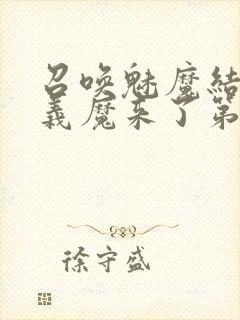 召唤魅魔结
义魔来了第
徐守盛